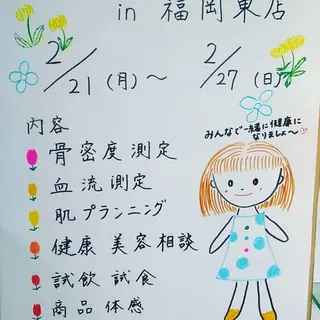 in 福岡東店
2/21(月)~ 2/27(日)
内容
みんなで一緒に健康に
なりましょ~♡
骨密度測定
血流測定
肌プランニング
健康美容相談
試飲 試食
商品体感